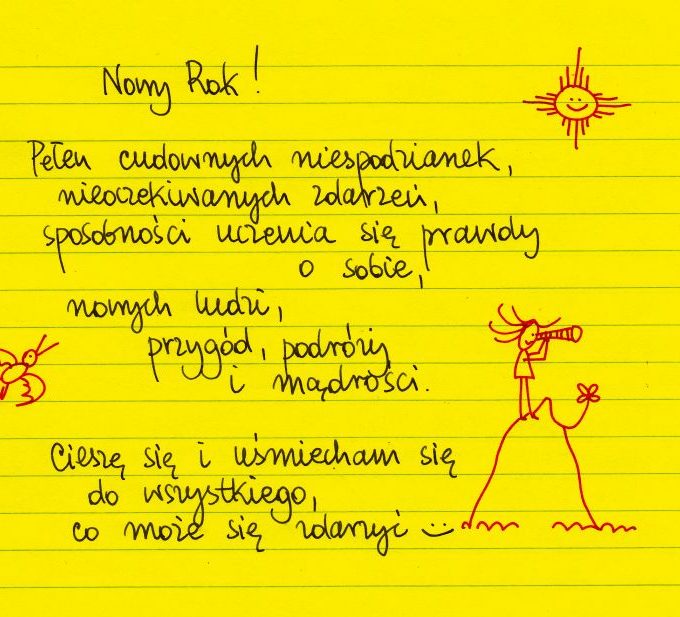 Nowy Rok!
Pełen cudownych niespodzianek,
nieoczekiwanych zdarzeń,
sposobności uczenia się prawdy
o sobie,
nowych ludzi,
przygód, podróży
i mądrości.
Cieszę się i uśmiecham się
do wszystkiego,
co może się zdarzyć :)